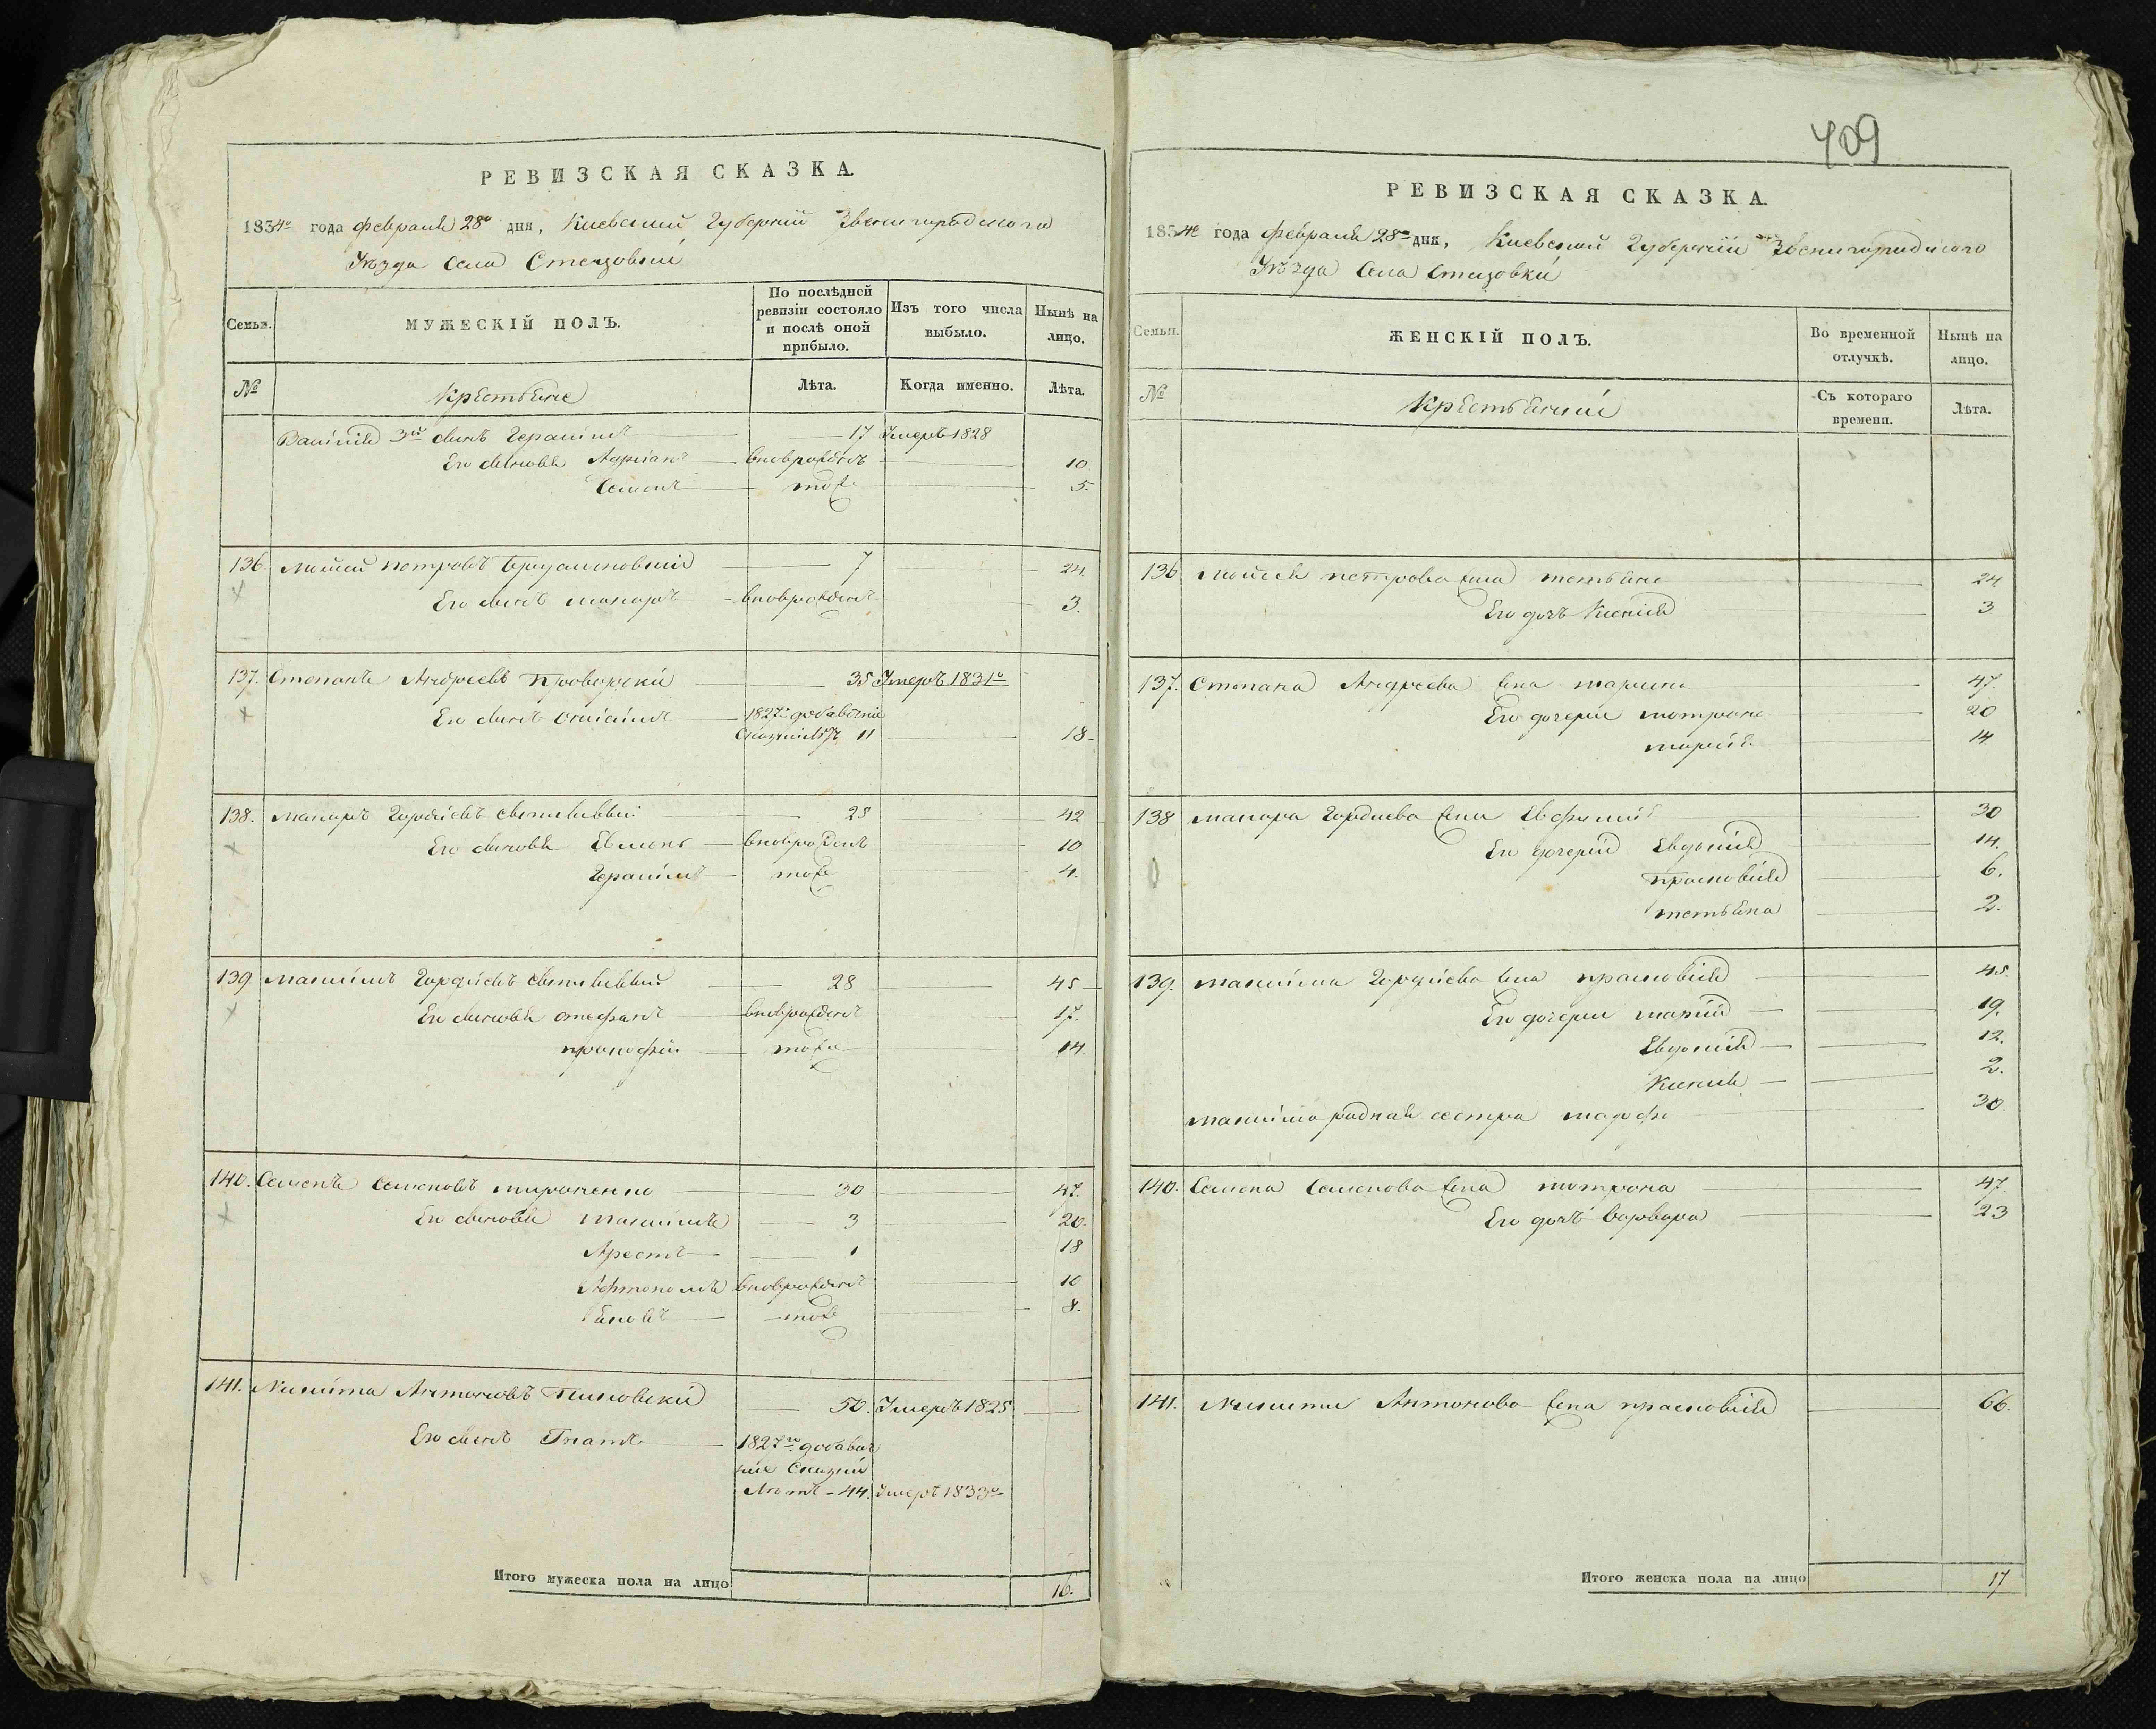 РЕВИЗСКАЯ СКАЗКА.
1834го года Февраля 28го дня, Киевской Губернии Звенигородского
Уѣзда Села Стецовки
Семьи.
МУЖЕСКІЙ ПОЛЪ.
По послѣдней ревизіи состояло и послѣ оной прибыло.
Изъ того числа выбыло.
Нынѣ на лицо.
№
Крестьяне
Лѣта.
Когда именно.
Лѣта.
3й сынъ Герасимъ 17 Умеръ 1828
Его сыновья Адріанъ вновьрожденъ 10.
Семенъ тоже 5.
136. Мойсей Петровъ 7 24.
Его сынъ Макаръ вновьрожденъ 3.
137. Степанъ Андреевъ 35 Умеръ 1831го
Его сынъ 1827го
11 18
138. Макаръ Гордіевъ 25 42
Его сыновья вновьрожденъ 10
Герасимъ тоже 4.
139. Максимъ Гордіевъ 28 45
Его сыновья Стефанъ вновьрожденъ 17.
Прокофій тоже 14.
140. Семенъ Семеновъ Мироненко 30 47.
Его сыновья Максимъ 3 20.
Арестъ 1 18
Артономъ вновьрожденъ 10
Яковъ тоже 8.
141. Никита Антоновъ 50. Умеръ 1825
Его сынъ Игнатъ 1827го
Лѣтъ 44. Умеръ 1833го
Итого мужеска пола на лицо 16.
409
РЕВИЗСКАЯ СКАЗКА.
1834го года Февраля 28го дня, Киевской Губерніи Звенигородского
Уѣзда Села Стецовки
Семьи.
ЖЕНСКІЙ ПОЛЪ.
Во временной отлучкѣ.
Нынѣ на лицо.
№
Крестьянки
Съ котораго времени.
Лѣта.
136 Мойсея Петрова жена Татьяна 24
Его дочь Ксенія 3
137. Степана Андреева жена Марина 47.
Его дочери Мотрона 20
Марія 14.
138 Макара Гордиева жена Евфимія 30
Его дочери Евдокія 14.
Прасковія 6.
Татьяна 2.
139. Максима Гордіева жена Прасковія 45.
Его дочери Марія 19.
Евдокія 12.
Ксенія 2.
Максима родная сестра Марфа 30.
140. Семена Семенова жена Мотрона 47.
Его дочь Варвара 23
141. Никиты Антонова жена Прасковія 66.
Итого женска пола на лицо 17